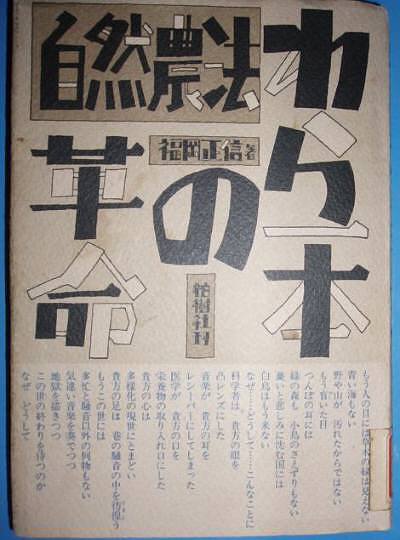 自然農法
わら一本
の
革命
福岡正信著
柏樹社刊
もう人の目には草木の緑は見えない
青い海もない
野や山が 汚れたからではない
もう盲いた目
つんぼの耳には
緑の森も 小鳥のさえずりもない
憂いと悲しみに沈む国には
白鳥はもう来ない
なぜ……どうして……こんなことに
科学者は 貴方の眼を
凸レンズにした
音楽が 貴方の耳を
レシーバーにしてしまった
医学が 貴方の口を
栄養物の取り入れ口にした
貴方の心は
多様化の現世にとまどい
貴方の足は 巷の騒音の中を彷徨う
もうこの世には
多忙と騒音以外の何物もない
気違い音楽を奏でつつ
地獄を描きつつ
この世の終わりを待つのか
なぜ どうして